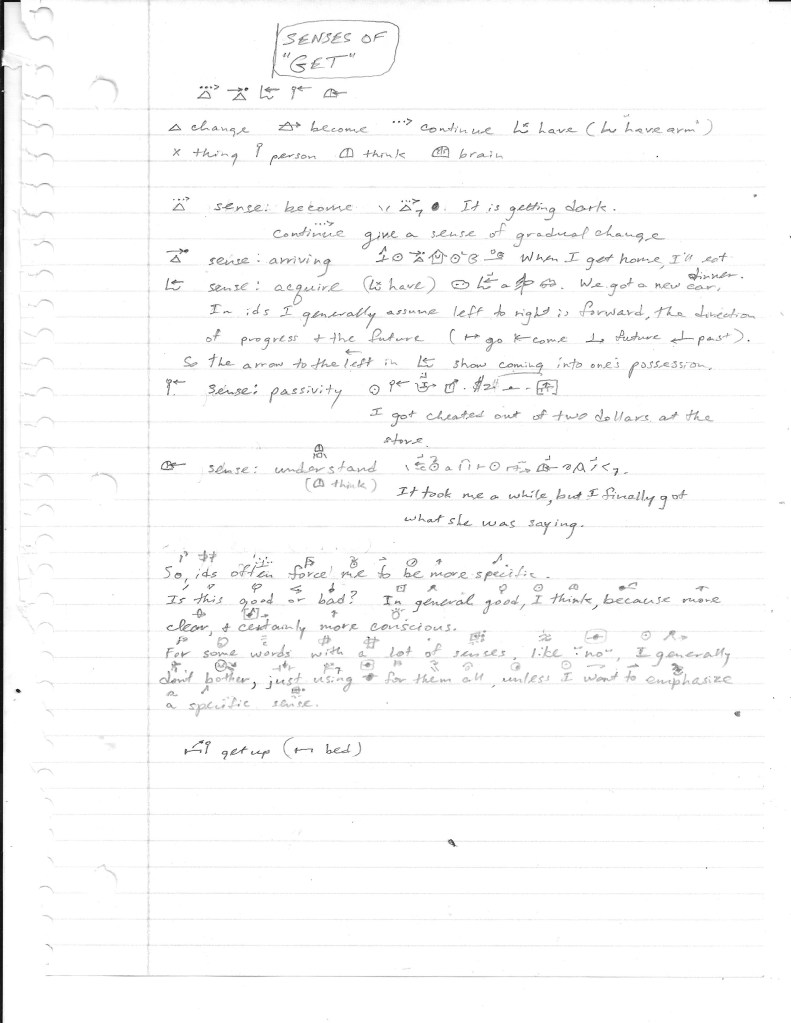 SENSES OF
"GET"
change become continue have (have arm)
thing person think brain
sense: become It is getting dark.
continue give a sense of gradual change
sense: arriving When I get home, I'll eat
dinner.
sense: acquire (have) We got a new car.
In ids I generally assume left to right is forward, the direction
of progress + the future (go come future past).
So the arrow to the left in show coming into one's possession.
sense: passivity
I got cheated out of two dollars at the
store.
sense: understand
(think)
It took me a while, but I finally got
what she was saying.
So, ids often force me to be more specific.
Is this good or bad? In general good, I think, because more
clear, + certainly more conscious.
For some words with a lot of senses, like "no", I generally
don't bother, just using for them all, unless I want to emphasize
a specific sense.
get up (bed)